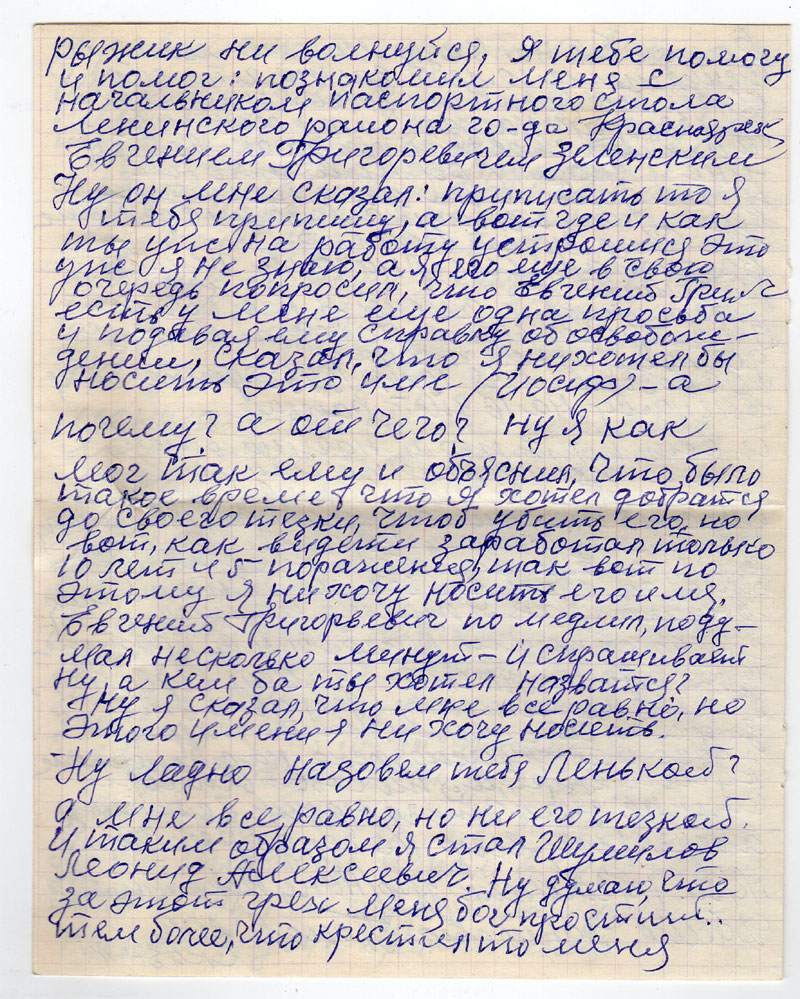 рыжик ни волнуйся, Я тебе помогу
и помог: познакомил меня с
начальником паспортного стола
Ленинского района го-да Красноярск
Евгением Григоревичем Зеленским
Ну он мне сказал: приписать то я
тебя припишу, а вот где и как
ты уже на работу устроишся это
уже я не знаю, а я его еще в свою
очередь попросил, что Евгений Григ
есть у меня еще одна просьба
и подавая ему справку об освобож-
дении, сказал, что я нихотел бы
носить это имя (Иосиф) - а
почему? а от чего? ну я как
мог так ему и объяснил, что было
такое время что я хотел добратся
до своего тезки, чтоб убить его, но
вот, как видети заработал только
10 лет и 5 поражения, так вот по
этому я ни хочу носить его имя.
Евгений Григорьевич по медлил, поду-
мал несколько минут - и спрашивает
ну, а кем ба ты хотел назватся?
Ну я сказал, что мне все равно, но
этого имени я ни хочу носить.
Ну ладно назовем тебя Ленькой?
а мне все равно, но ни его тезкой.
И таким образом я стал Шумилов
Леонид Алексеевич. Ну думаю, что
за этот грех меня бог простит..
тем более, что крестил то меня